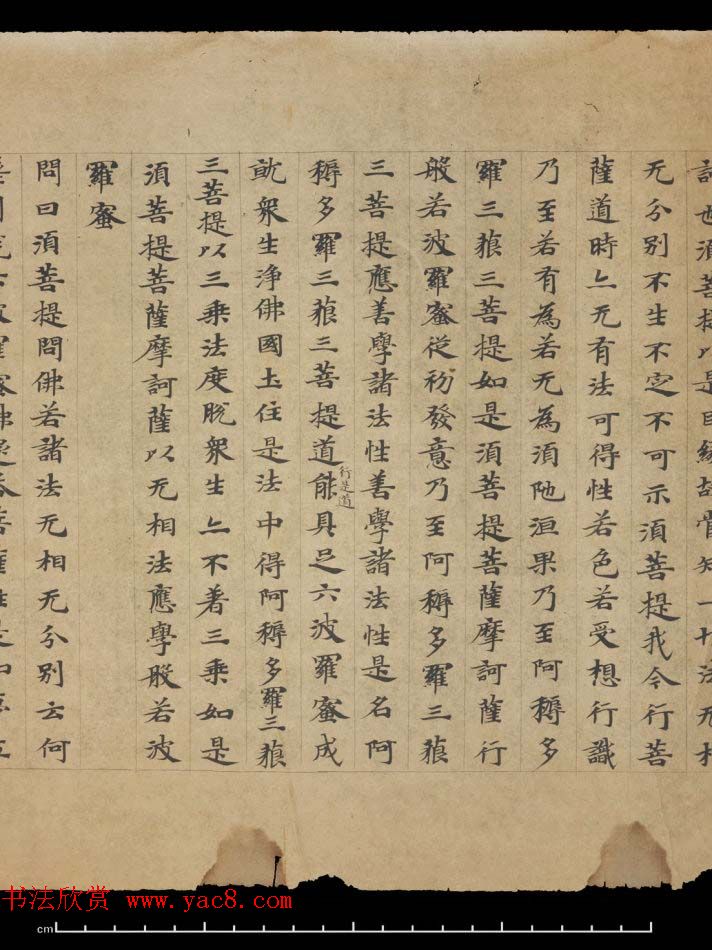 也須菩提以是因緣故當知一切法无相
无分别不生不㝎不可示須菩提我今行菩
薩道時亦无有法可得性若色若受想行識
乃至若有為若无為須陁洹果乃至阿耨多
羅三藐三菩提如是須菩提菩薩摩訶薩行
般若波羅蜜從初發意乃至阿耨多羅三藐
三菩提應善學諸法性善學諸法性是名阿
耨多羅三藐三菩提道能具足六波羅蜜成
行是道
就衆生浄佛國土住是法中得阿耨多羅三藐
三菩提以三乘法度脫衆生亦不著三乘如是
須菩提菩薩摩訶薩以无相法應學般若波
羅蜜
問曰須菩提問佛若諸法无相无分别云何
羅蜜佛
书法欣赏 www.yac8.com
cm